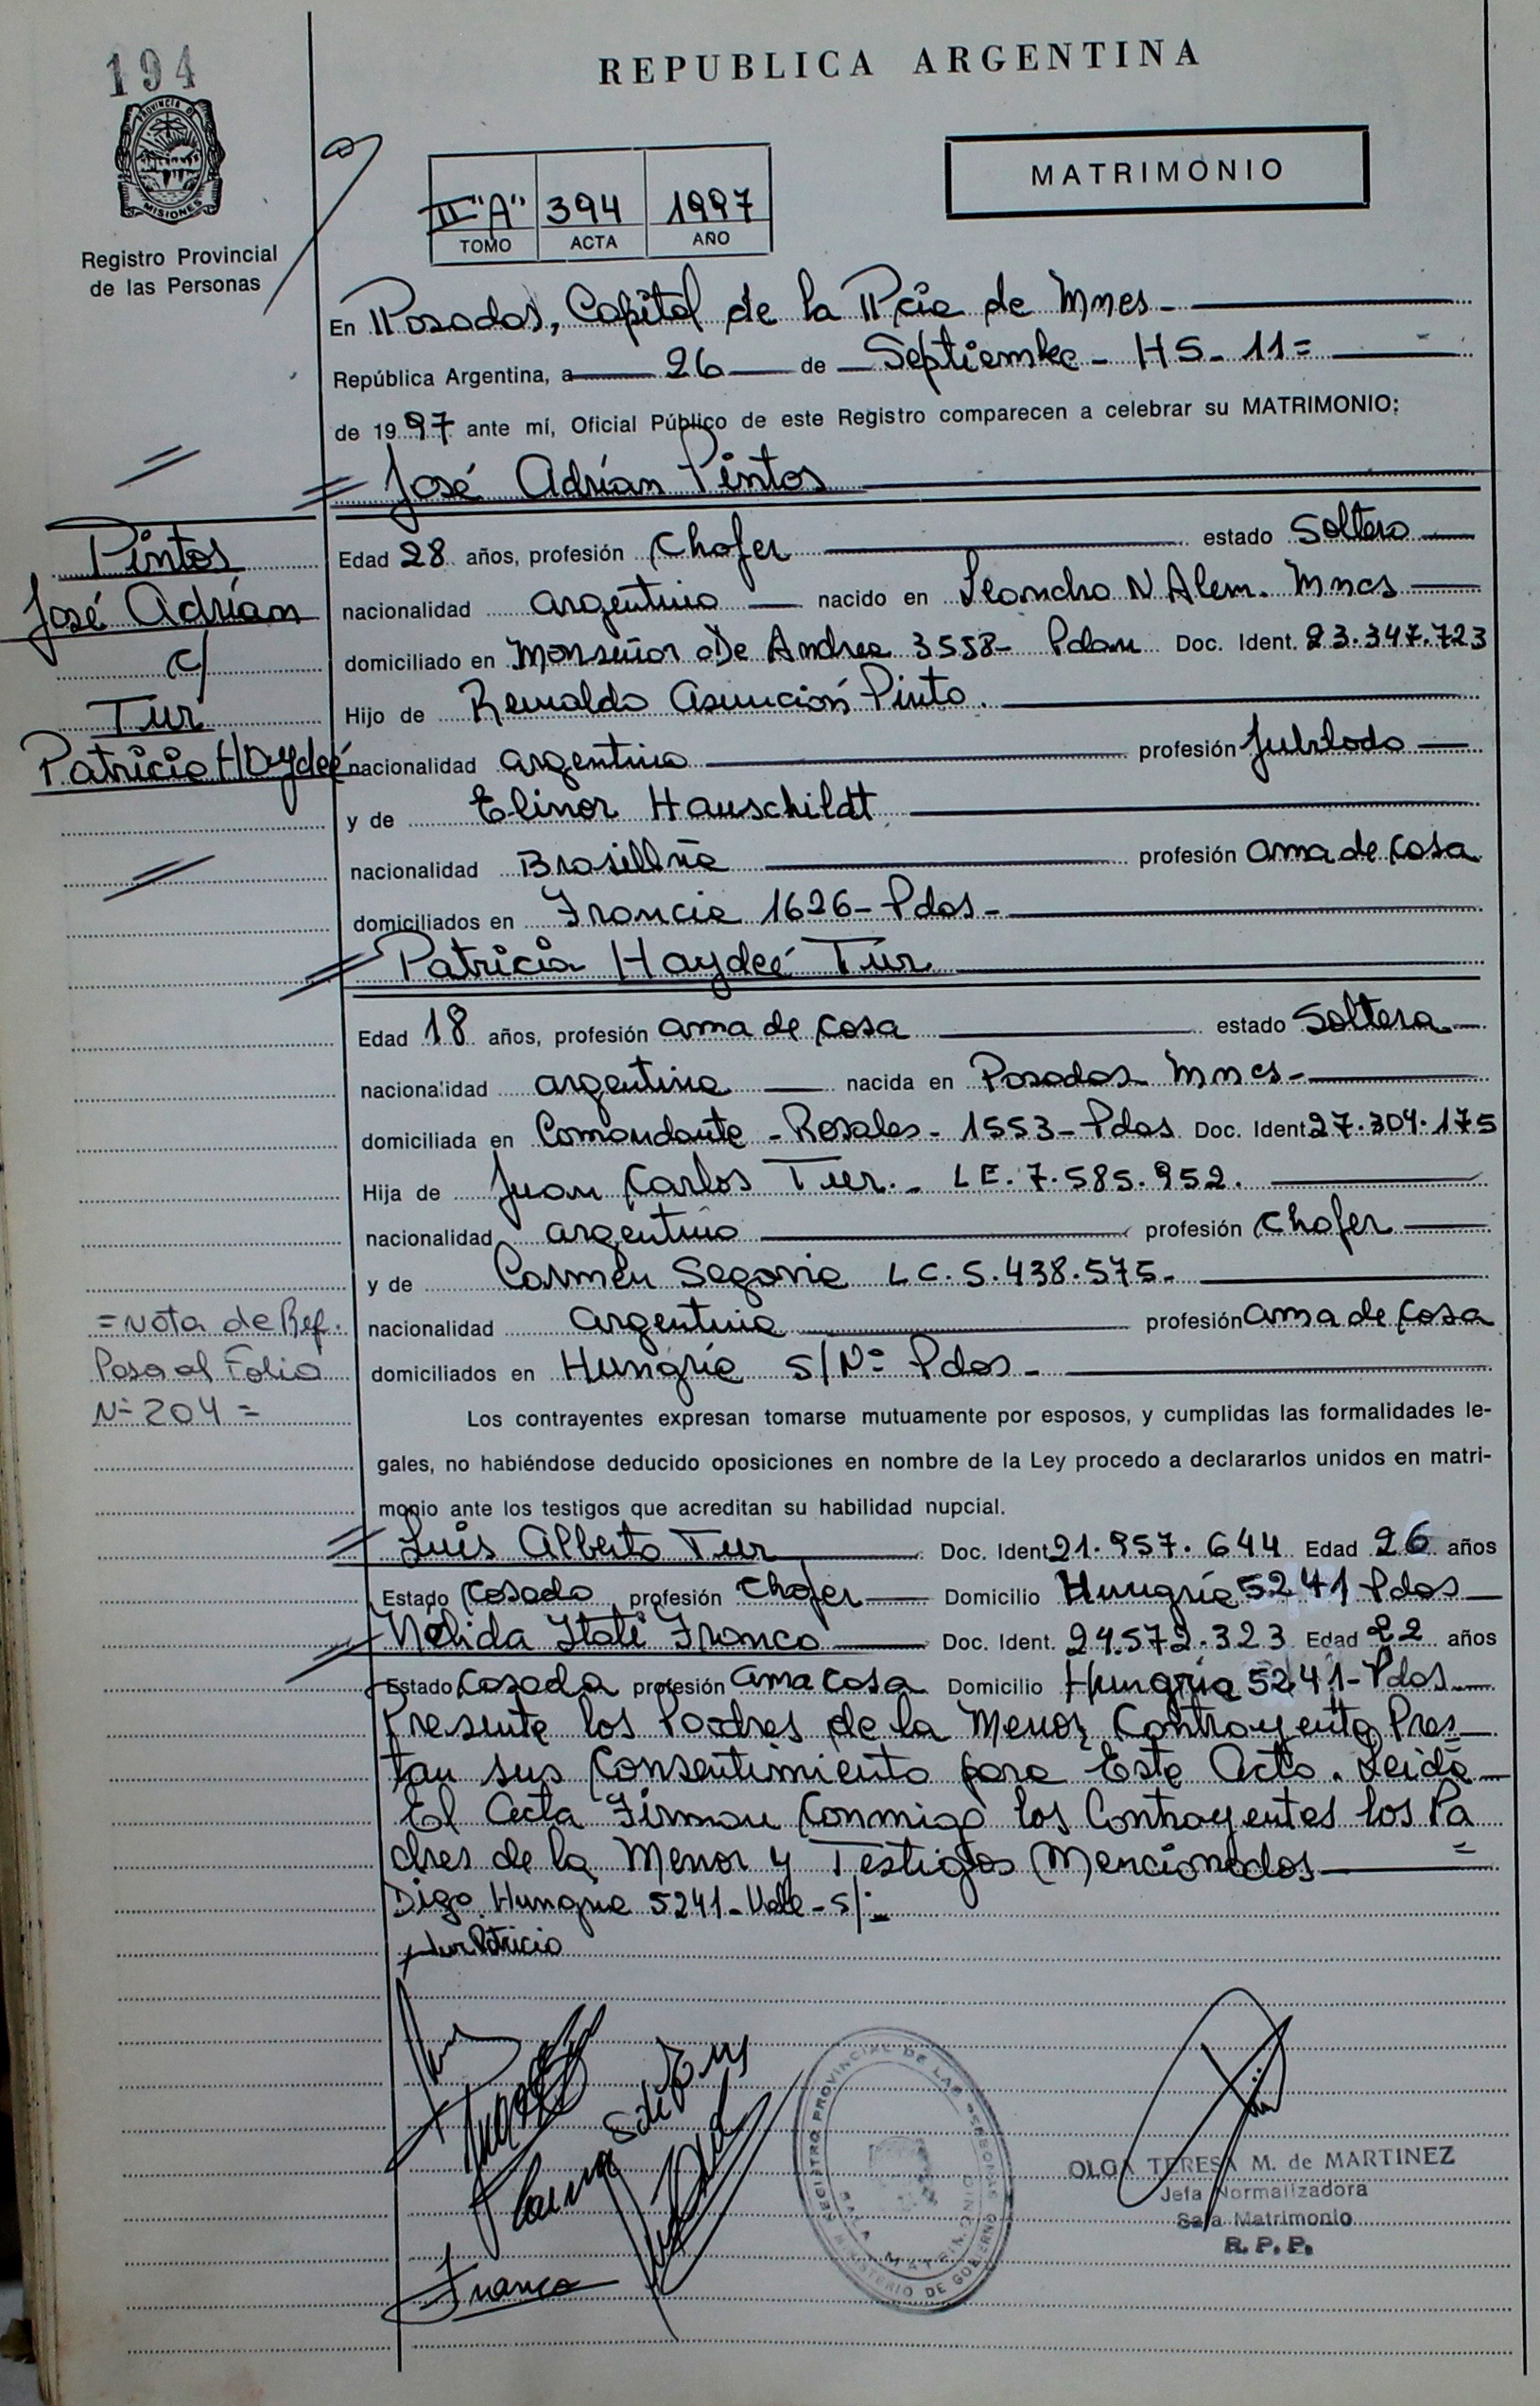 194
REPUBLICA ARGENTINA
PROVINCIA DE
MISIONES
MATRIMONIO
Registro Provincial
de las Personas
II "A" 394 1997
TOMO ACTA AÑO
En Posadas, Capital de la Pcia de Mnes-
República Argentina, a 26 de Septiembre - HS- 11=
de 1997 ante mí, Oficial Público de este Registro comparecen a celebrar su MATRIMONIO:
José Adrían Pintos
Pintos
José Adrían
c/
Tur
Patricia Haydeé
Edad 28 años, profesión Chofer estado Soltero
nacionalidad argentino nacido en Leandro N Alem. Mnes
domiciliado en Monseñor De Andrea 3558- Pdas Doc. Ident. 23.347.723
Hijo de Reinaldo Asunción Pinto.
nacionalidad argentino profesión Jubilado
y de Elinor Hauschildt
nacionalidad Brasilña profesión ama de casa
domiciliados en Francia 1626- Pdas-
Patricia Haydeé Tur
Edad 18 años, profesión ama de casa estado Soltera
nacionalidad argentina nacida en Posadas Mnes-
domiciliada en Comandante - Rosales - 1553- Pdas Doc. Ident 27.304.175
Hija de Juan Carlos Tur.- LE. 7.585.952.
nacionalidad argentino profesión Chofer
y de Carmen Segovia LC. 5.438.575-
nacionalidad argentina profesión ama de casa
domiciliados en Hungría S/Nº Pdas-
=Nota de Ref.
Pasa al Folio
Nº 204=
Los contrayentes expresan tomarse mutuamente por esposos, y cumplidas las formalidades le-
gales, no habiéndose deducido oposiciones en nombre de la Ley procedo a declararlos unidos en matri-
monio ante los testigos que acreditan su habilidad nupcial.
Luis Alberto Tur Doc. Ident 21.957.644 Edad 26 años
Estado Casado profesión Chofer Domicilio Hungría 5241 Pdas
Nélida Itatí Franco Doc. Ident. 24.572.323 Edad 22 años
Estado Casada profesión ama casa Domicilio Hungría 5241- Pdas
Presente los Padres de la Menor Contrayente Pres
tan sus Consentimiento para Este Acto. Leida
El Acta Firman Conmigo los Contrayentes los Pa
dres de la Menor y Testigos Mencionados =
Digo Hungría 5241- Vale- S/:
Tur Patricia
Franco
REGISTRO PROVINCIAL DE LAS PERSONAS
SALA MATRIMONIO
MINISTERIO DE GOBIERNO
OLGA TERESA M. de MARTINEZ
Jefa Normalizadora
Sala Matrimonio
R. P. P.